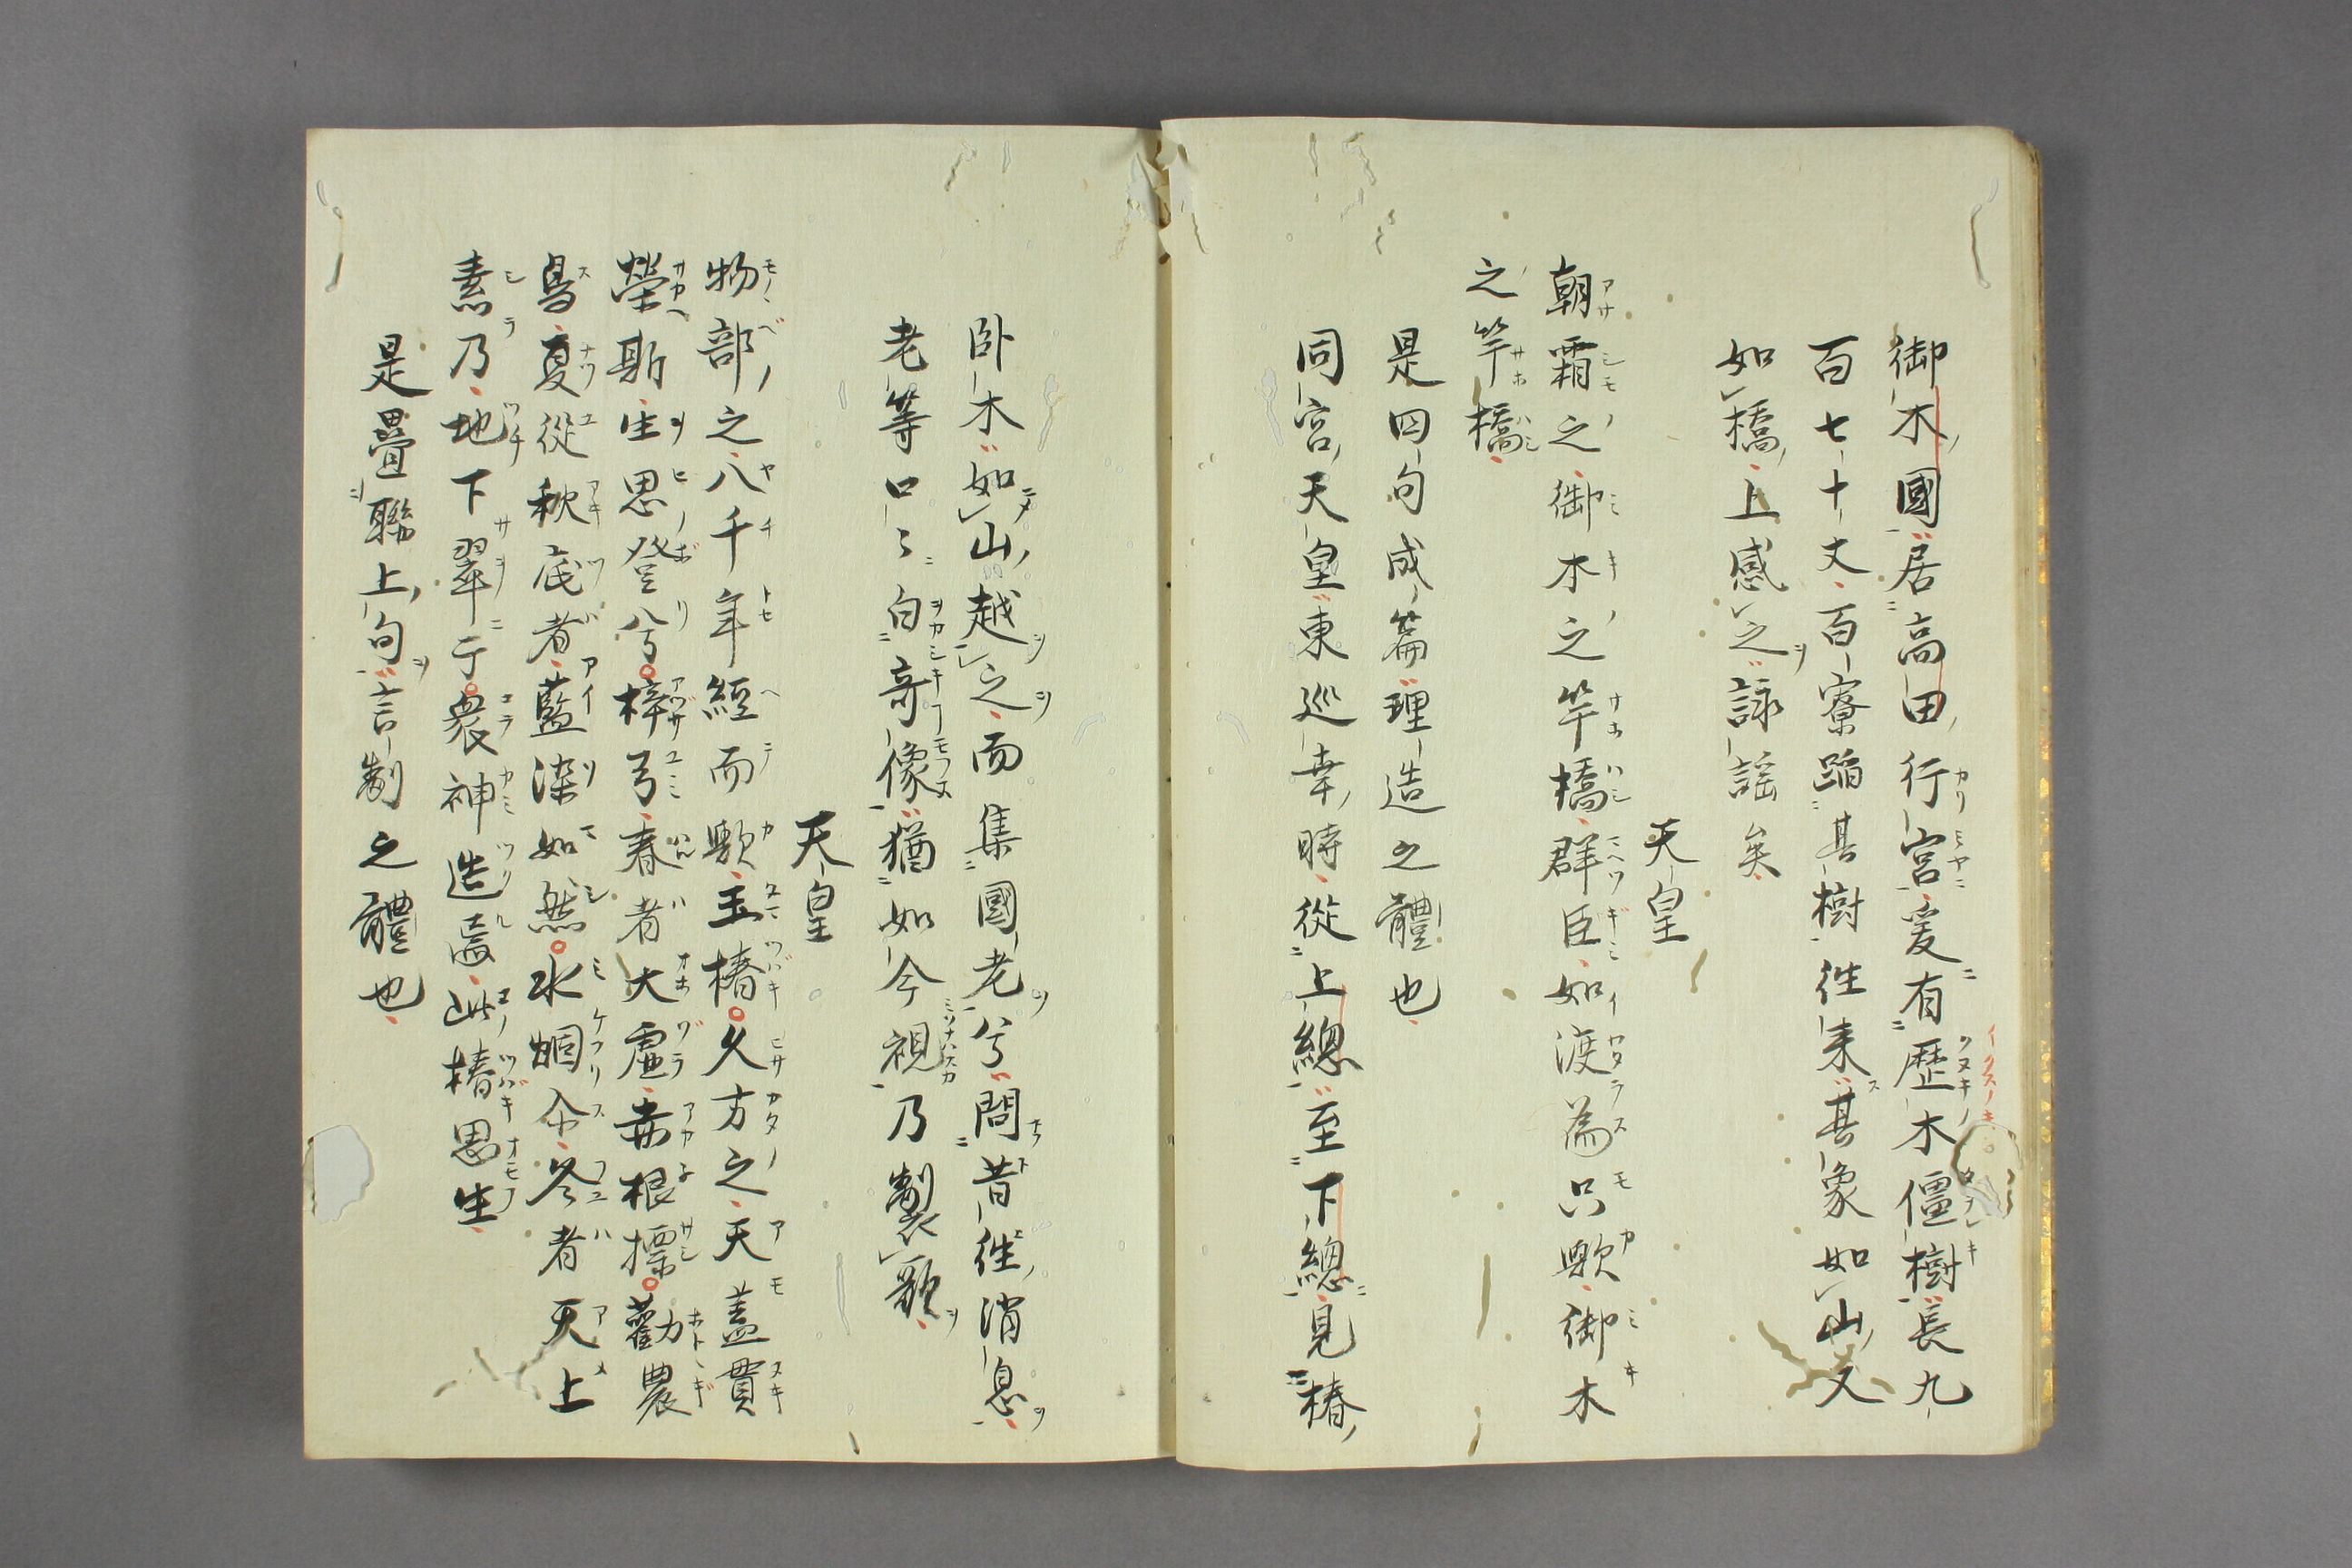 御木國居高田行宮爰有歴木僵樹長九
百七十丈百寮蹈其樹往来其象如山又
如橋上感之詠謡矣
天皇
朝霜之御木之竿橋群臣如渡為只歟御木
之竿橋
是四句成篇理造之體也
同宮天皇東巡幸時從上總至下總見椿
卧木如山越之而集國老兮問昔往消息
老等口々白奇像猶如今視乃製歌
天皇
物部之八千年經而歟玉椿久方之天蓋貫
榮斯生思登兮梓弓春者大虚赤根摽勸農
鳥夏從秋底者藍染如然水烟尒冬者天上
素乃地下翠于衆神造焉此椿思生
是疊聯上句言制之體也